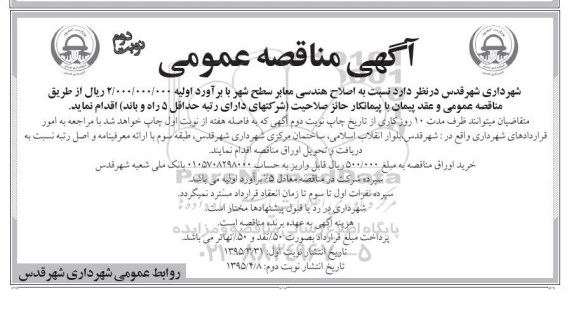 نوبت دوم
آگهی مناقصه عمومی
شهرداری شهرقدس درنظر دارد نسبت به اصلاح هندسی معابر سطح شهر با برآورد اولیه ۲/۰۰۰/۰۰۰/۰۰۰ ریال از طریق
مناقصه عمومی و عقد پیمان با پیمانکار حائز صلاحیت (شرکتهای دارای رتبه حداقل ۵ راه و باند) اقدام نمایند.
متقاضیان میتوانند ظرف مدت ۱۰ روز کاری از تاریخ چاپ نوبت دوم آگهی که به فاصله هفته از نوبت اول چاپ خواهد شد با مراجعه به امور
قراردادهای شهرداری واقع در : شهرقدس،بلوار انقلاب اسلامی، ساختمان مرکزی شهرداری شهرقدس، طبقه سوم با ارائه معرفینامه و اصل رتبه نسبت به
دریافت و تحویل اوراق مناقصه اقدام نمایند.
خرید اوراق مناقصه به مبلغ ۵۰۰/۰۰۰ ریال قابل واریز به حساب ۰۱۰۵۷۰۸۲۹۸۰۰۰ بانک ملی شعبه شهرقدس
سپرده شرکت در مناقصه معادل ۵٪ برآورد اولیه می باشد.
سپرده نفرات اول تا سوم تا زمان انعقاد قرارداد مسترد نمیگردد.
شهرداری در رد یا قبول پیشنهادها مختار است.
هزینه آگهی به عهده برنده مناقصه است.
پرداخت مبلغ قرارداد بصورت ۵۰٪ نقد و ۵۰٪ تهاتر می باشد.
تاریخ انتشار نوبت اول: ۱۳۹۵/۳/۳۱
تاریخ انتشار نوبت دوم: ۱۳۹۵/۴/۸
روابط عمومی شهرداری شهرقدس